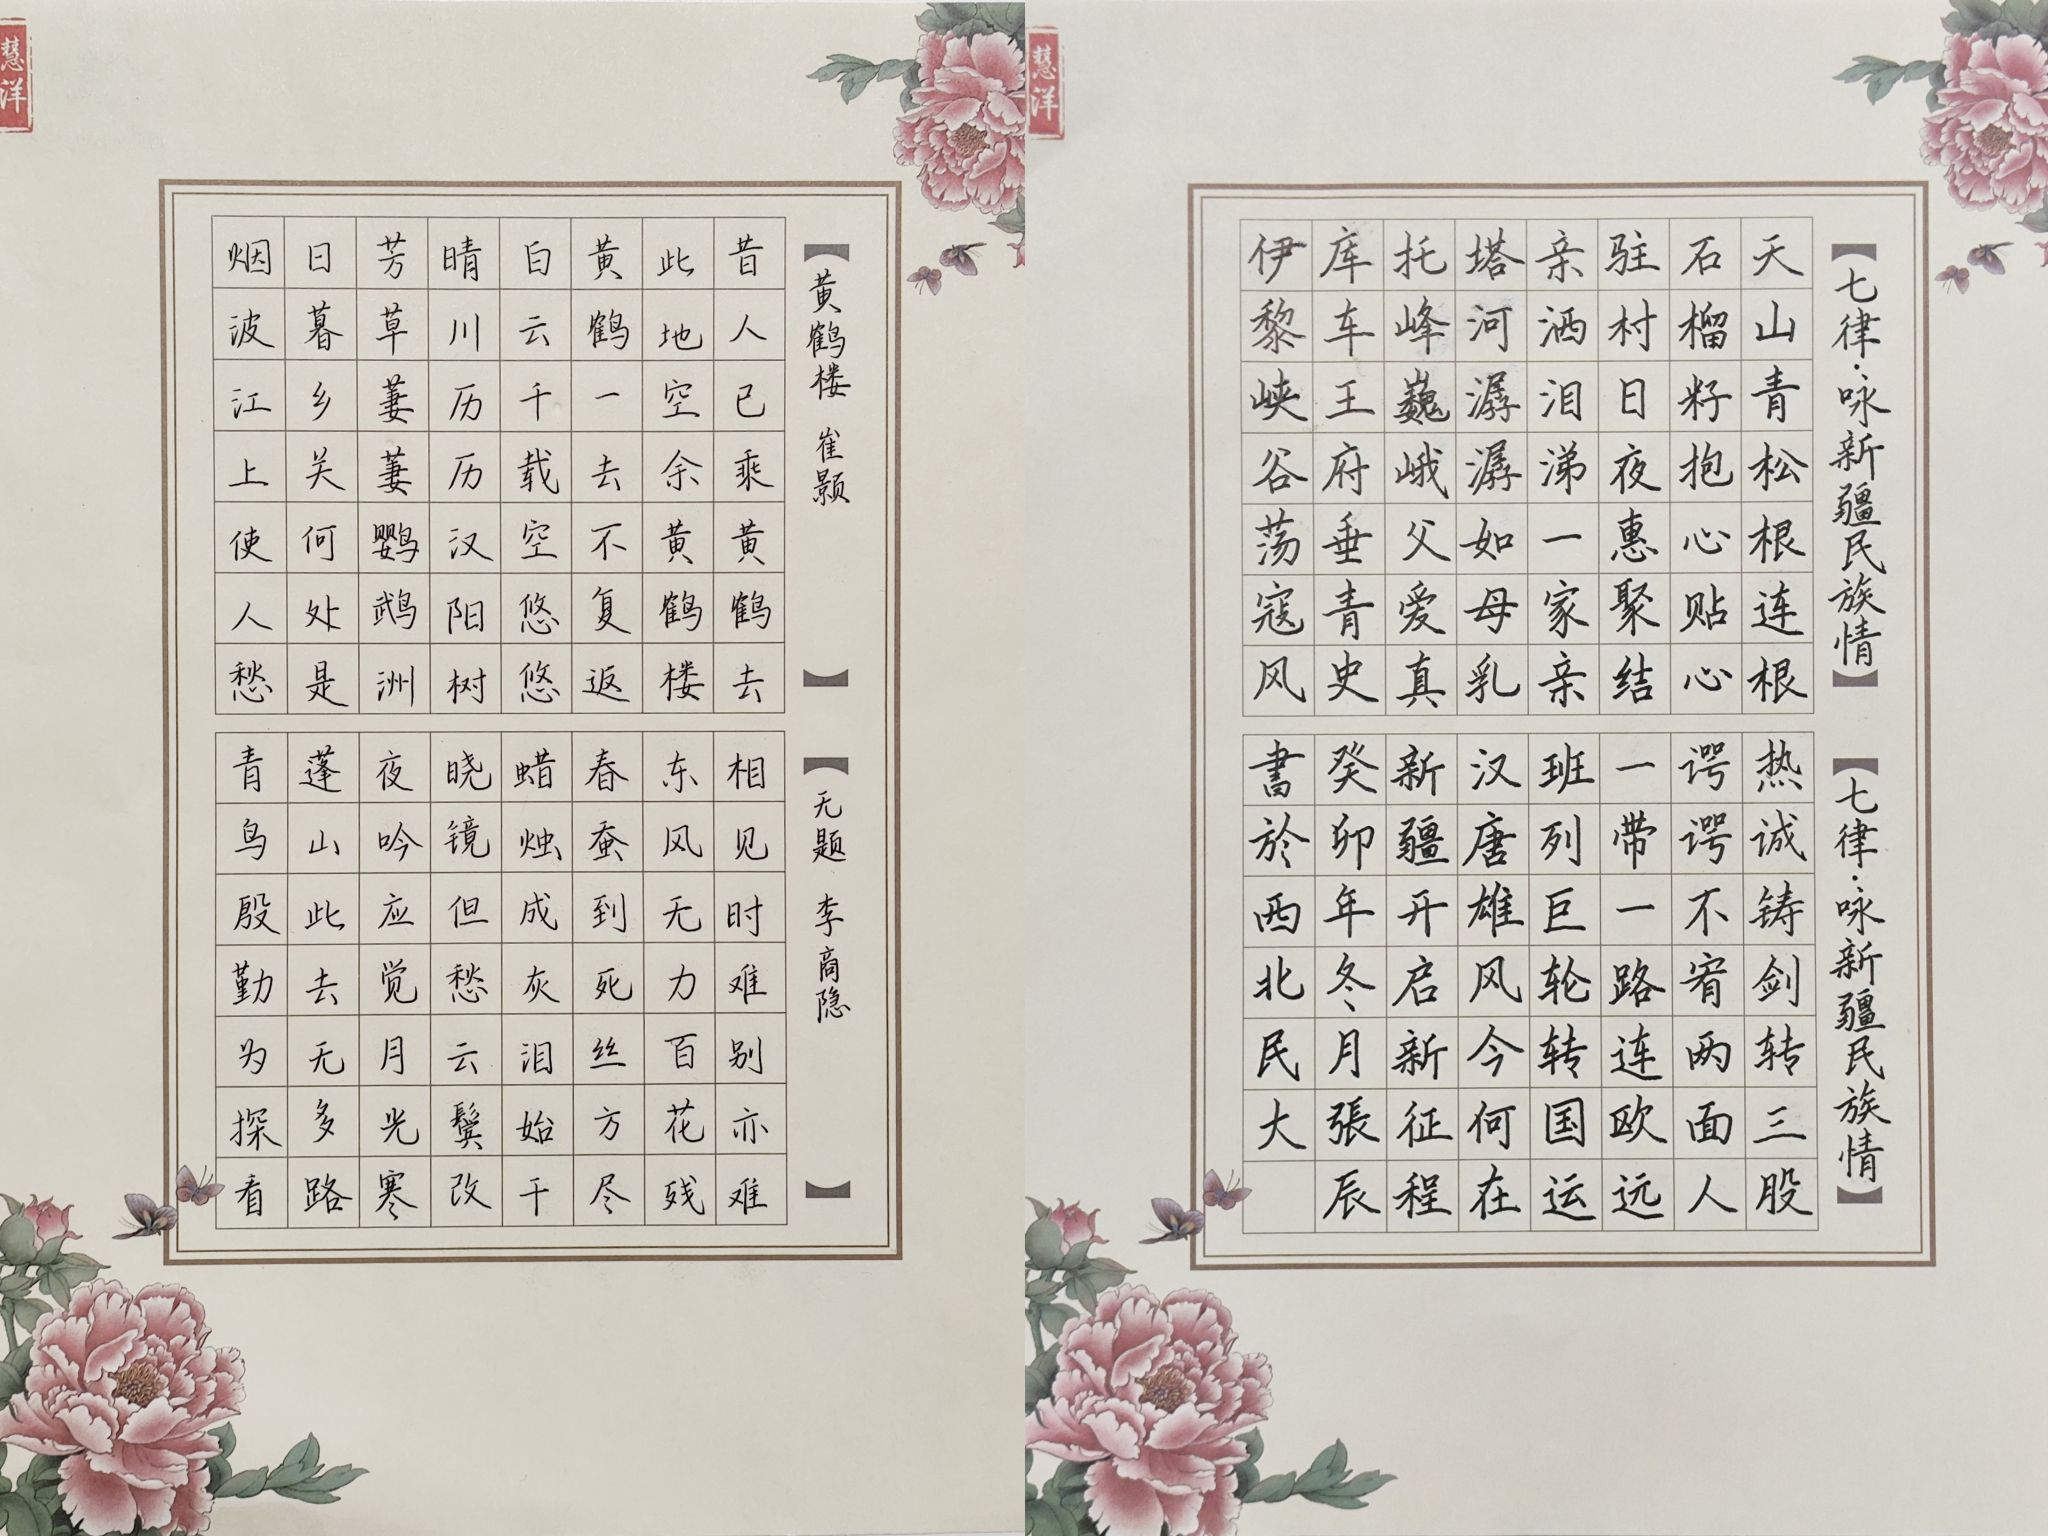 慧洋
【黄鹤楼 崔颢】
昔人已乘黄鹤去
此地空余黄鹤楼
黄鹤一去不复返
白云千载空悠悠
晴川历历汉阳树
芳草萋萋鹦鹉洲
日暮乡关何处是
烟波江上使人愁
【无题 李商隐】
相见时难别亦难
东风无力百花残
春蚕到死丝方尽
蜡烛成灰泪始干
晓镜但愁云鬓改
夜吟应觉月光寒
蓬山此去无多路
青鸟殷勤为探看
慧洋
【七律·咏新疆民族情】
天山青松根连根
石榴籽抱心贴心
驻村日夜惠聚结
亲洒泪涕一家亲
塔河潺潺如母乳
托峰巍峨父爱真
库车王府垂青史
伊黎峡谷荡寇风
【七律·咏新疆民族情】
热诚铸剑转三股
谔谔不宥两面人
一带一路连欧远
班列巨轮转国运
汉唐雄风今何在
新疆开启新征程
癸卯年冬月張辰
書於西北民大